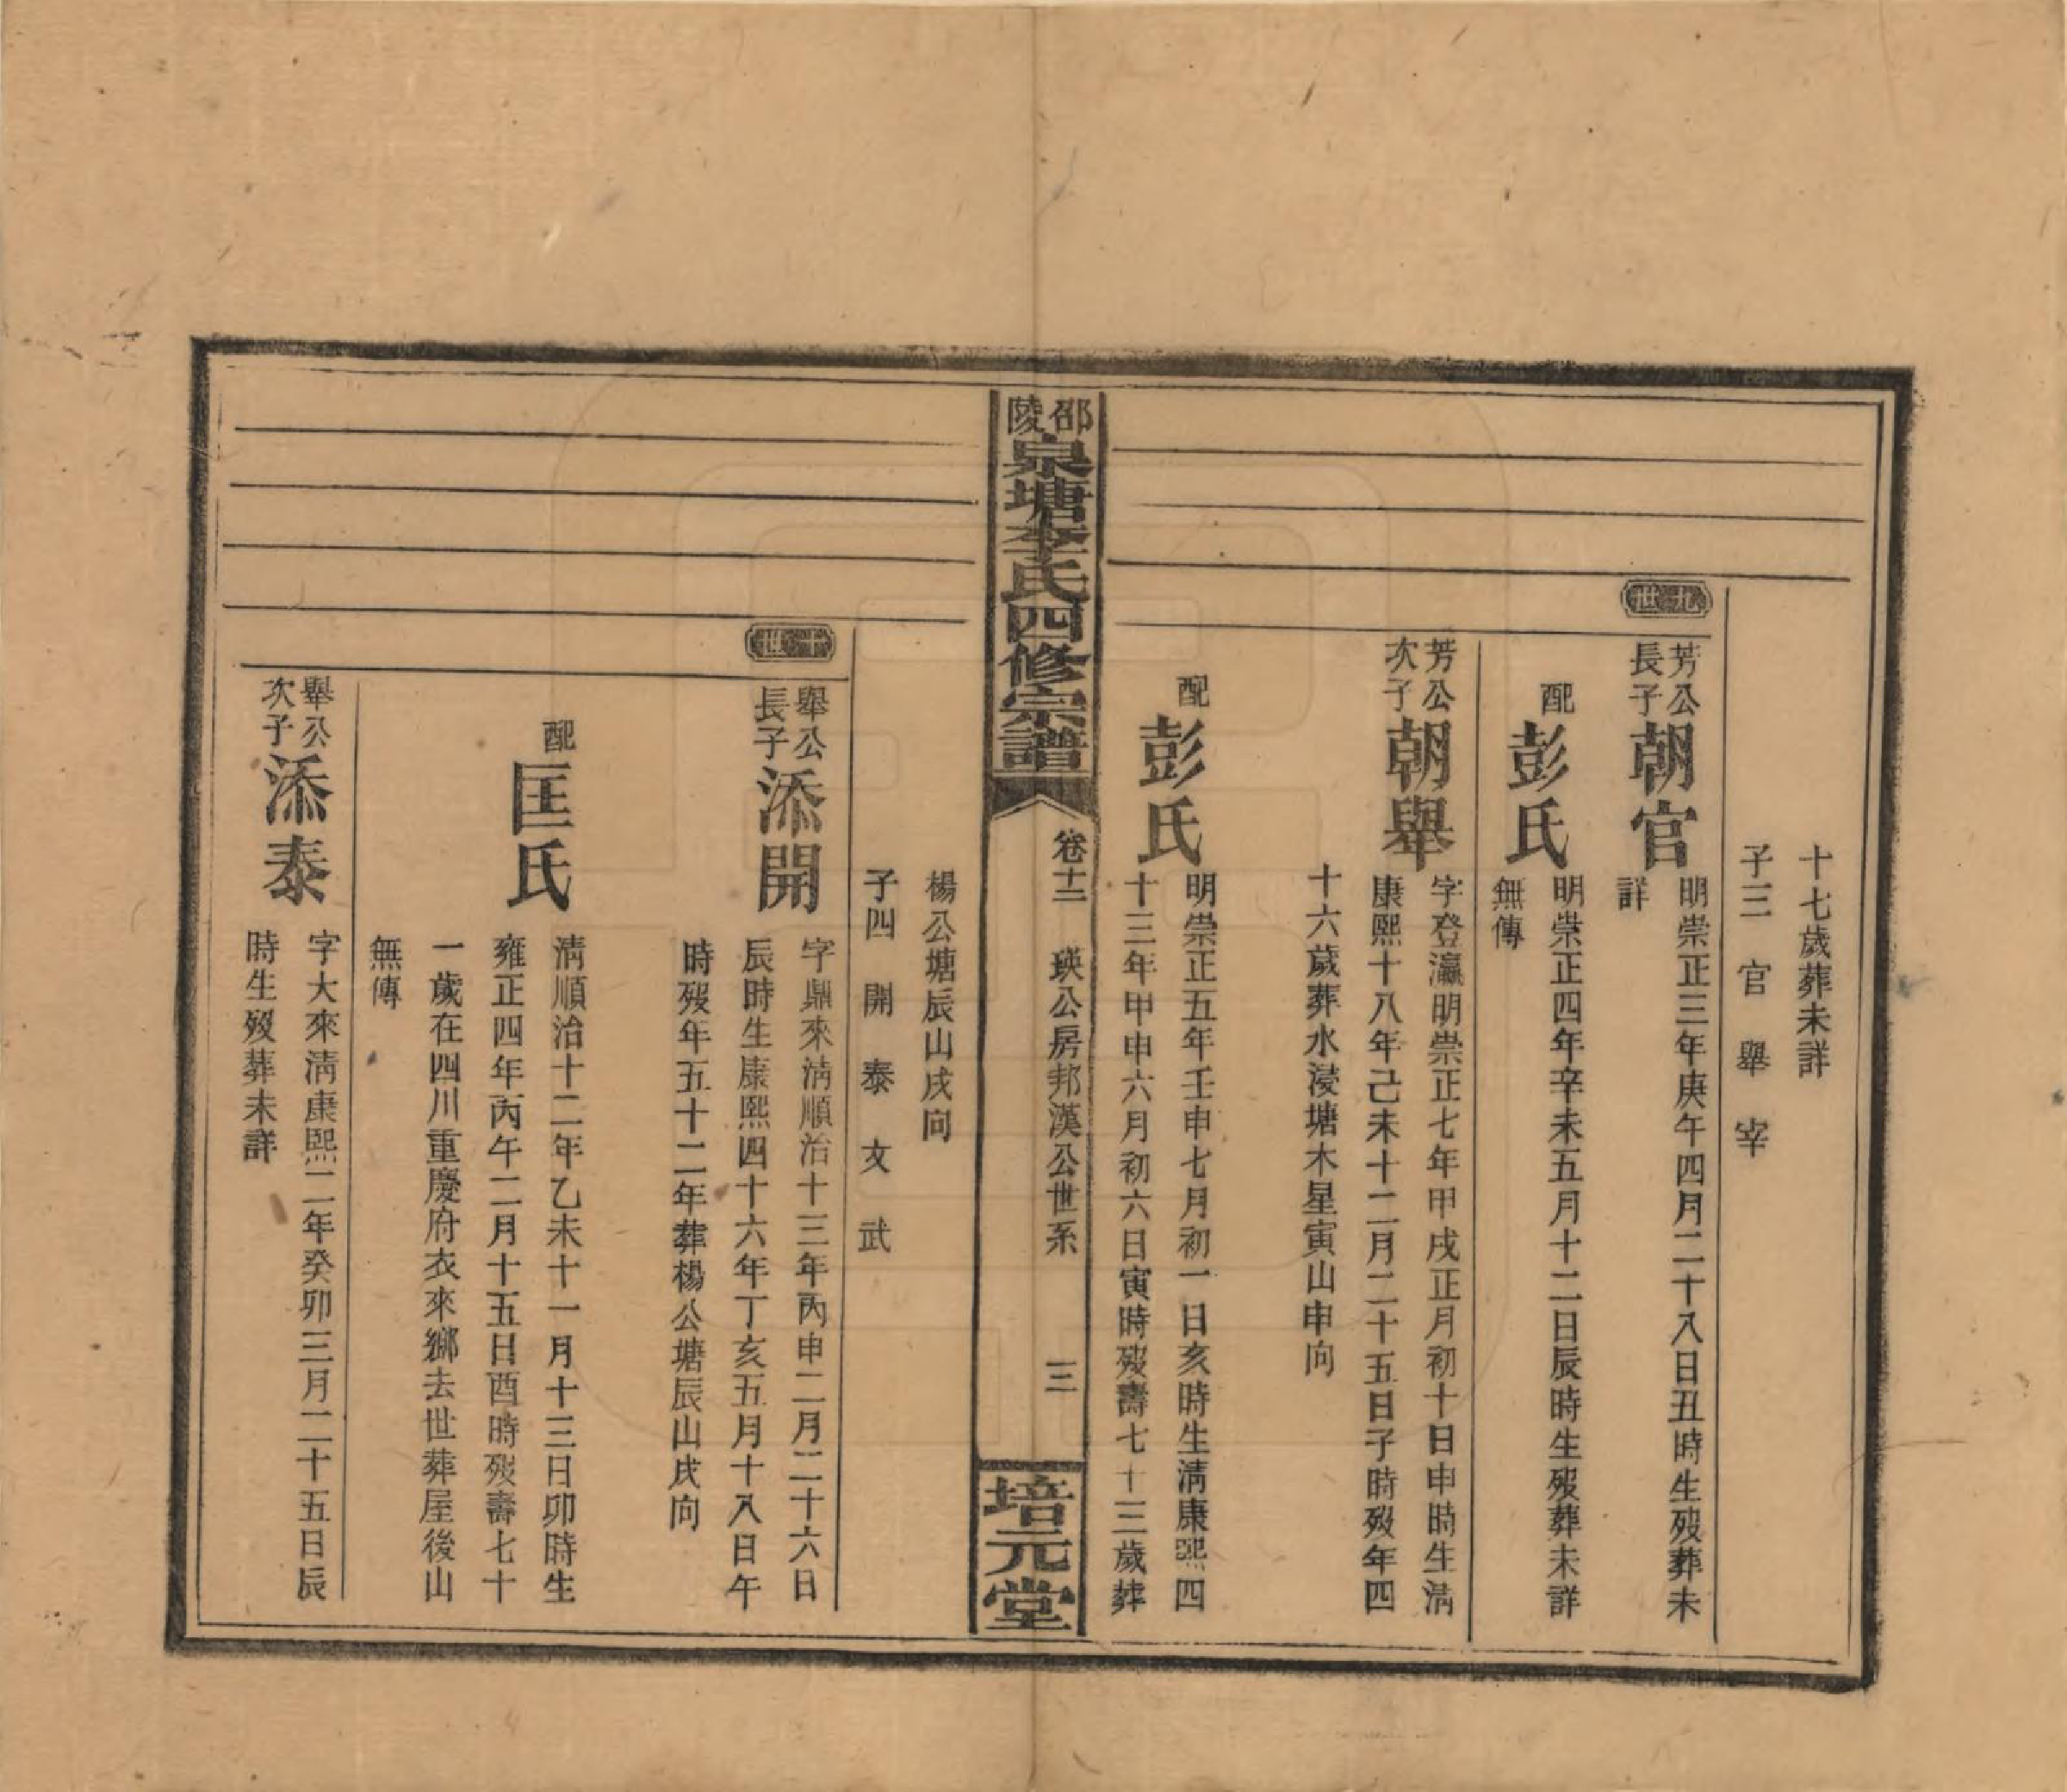 十七歲葬未詳
子三 官 舉 宰
九世
芳公長子
朝官
明崇正三年庚午四月二十八日丑時生歿葬未
詳
配
彭氏
明崇正四年辛未五月十二日辰時生歿葬未詳
無傳
芳公次子
朝舉
字登瀛明崇正七年甲戌正月初十日申時生淸
康熙十八年己未十二月二十五日子時歿年四
十六歲葬水浸塘木星寅山申向
配
彭氏
明崇正五年壬申七月初一日亥時生淸康熙四
十三年甲申六月初六日寅時歿壽七十三歲葬
邵陵
泉塘李氏四修宗譜
卷十二 瑛公房邦漢公世系 三
培元堂
楊公塘辰山戌向
子四 開 泰 文 武
十世
舉公長子
添開
字鼎來淸順治十三年丙申二月二十六日
辰時生康熙四十六年丁亥五月十八日午
時歿年五十二年葬楊公塘辰山戌向
配
匡氏
淸順治十二年乙未十一月十三日卯時生
雍正四年丙午二月十五日酉時歿壽七十
一歲在四川重慶府衣來鄉去世葬屋後山
無傳
舉公次子
添泰
字大來淸康熙二年癸卯三月二十五日辰
時生歿葬未詳